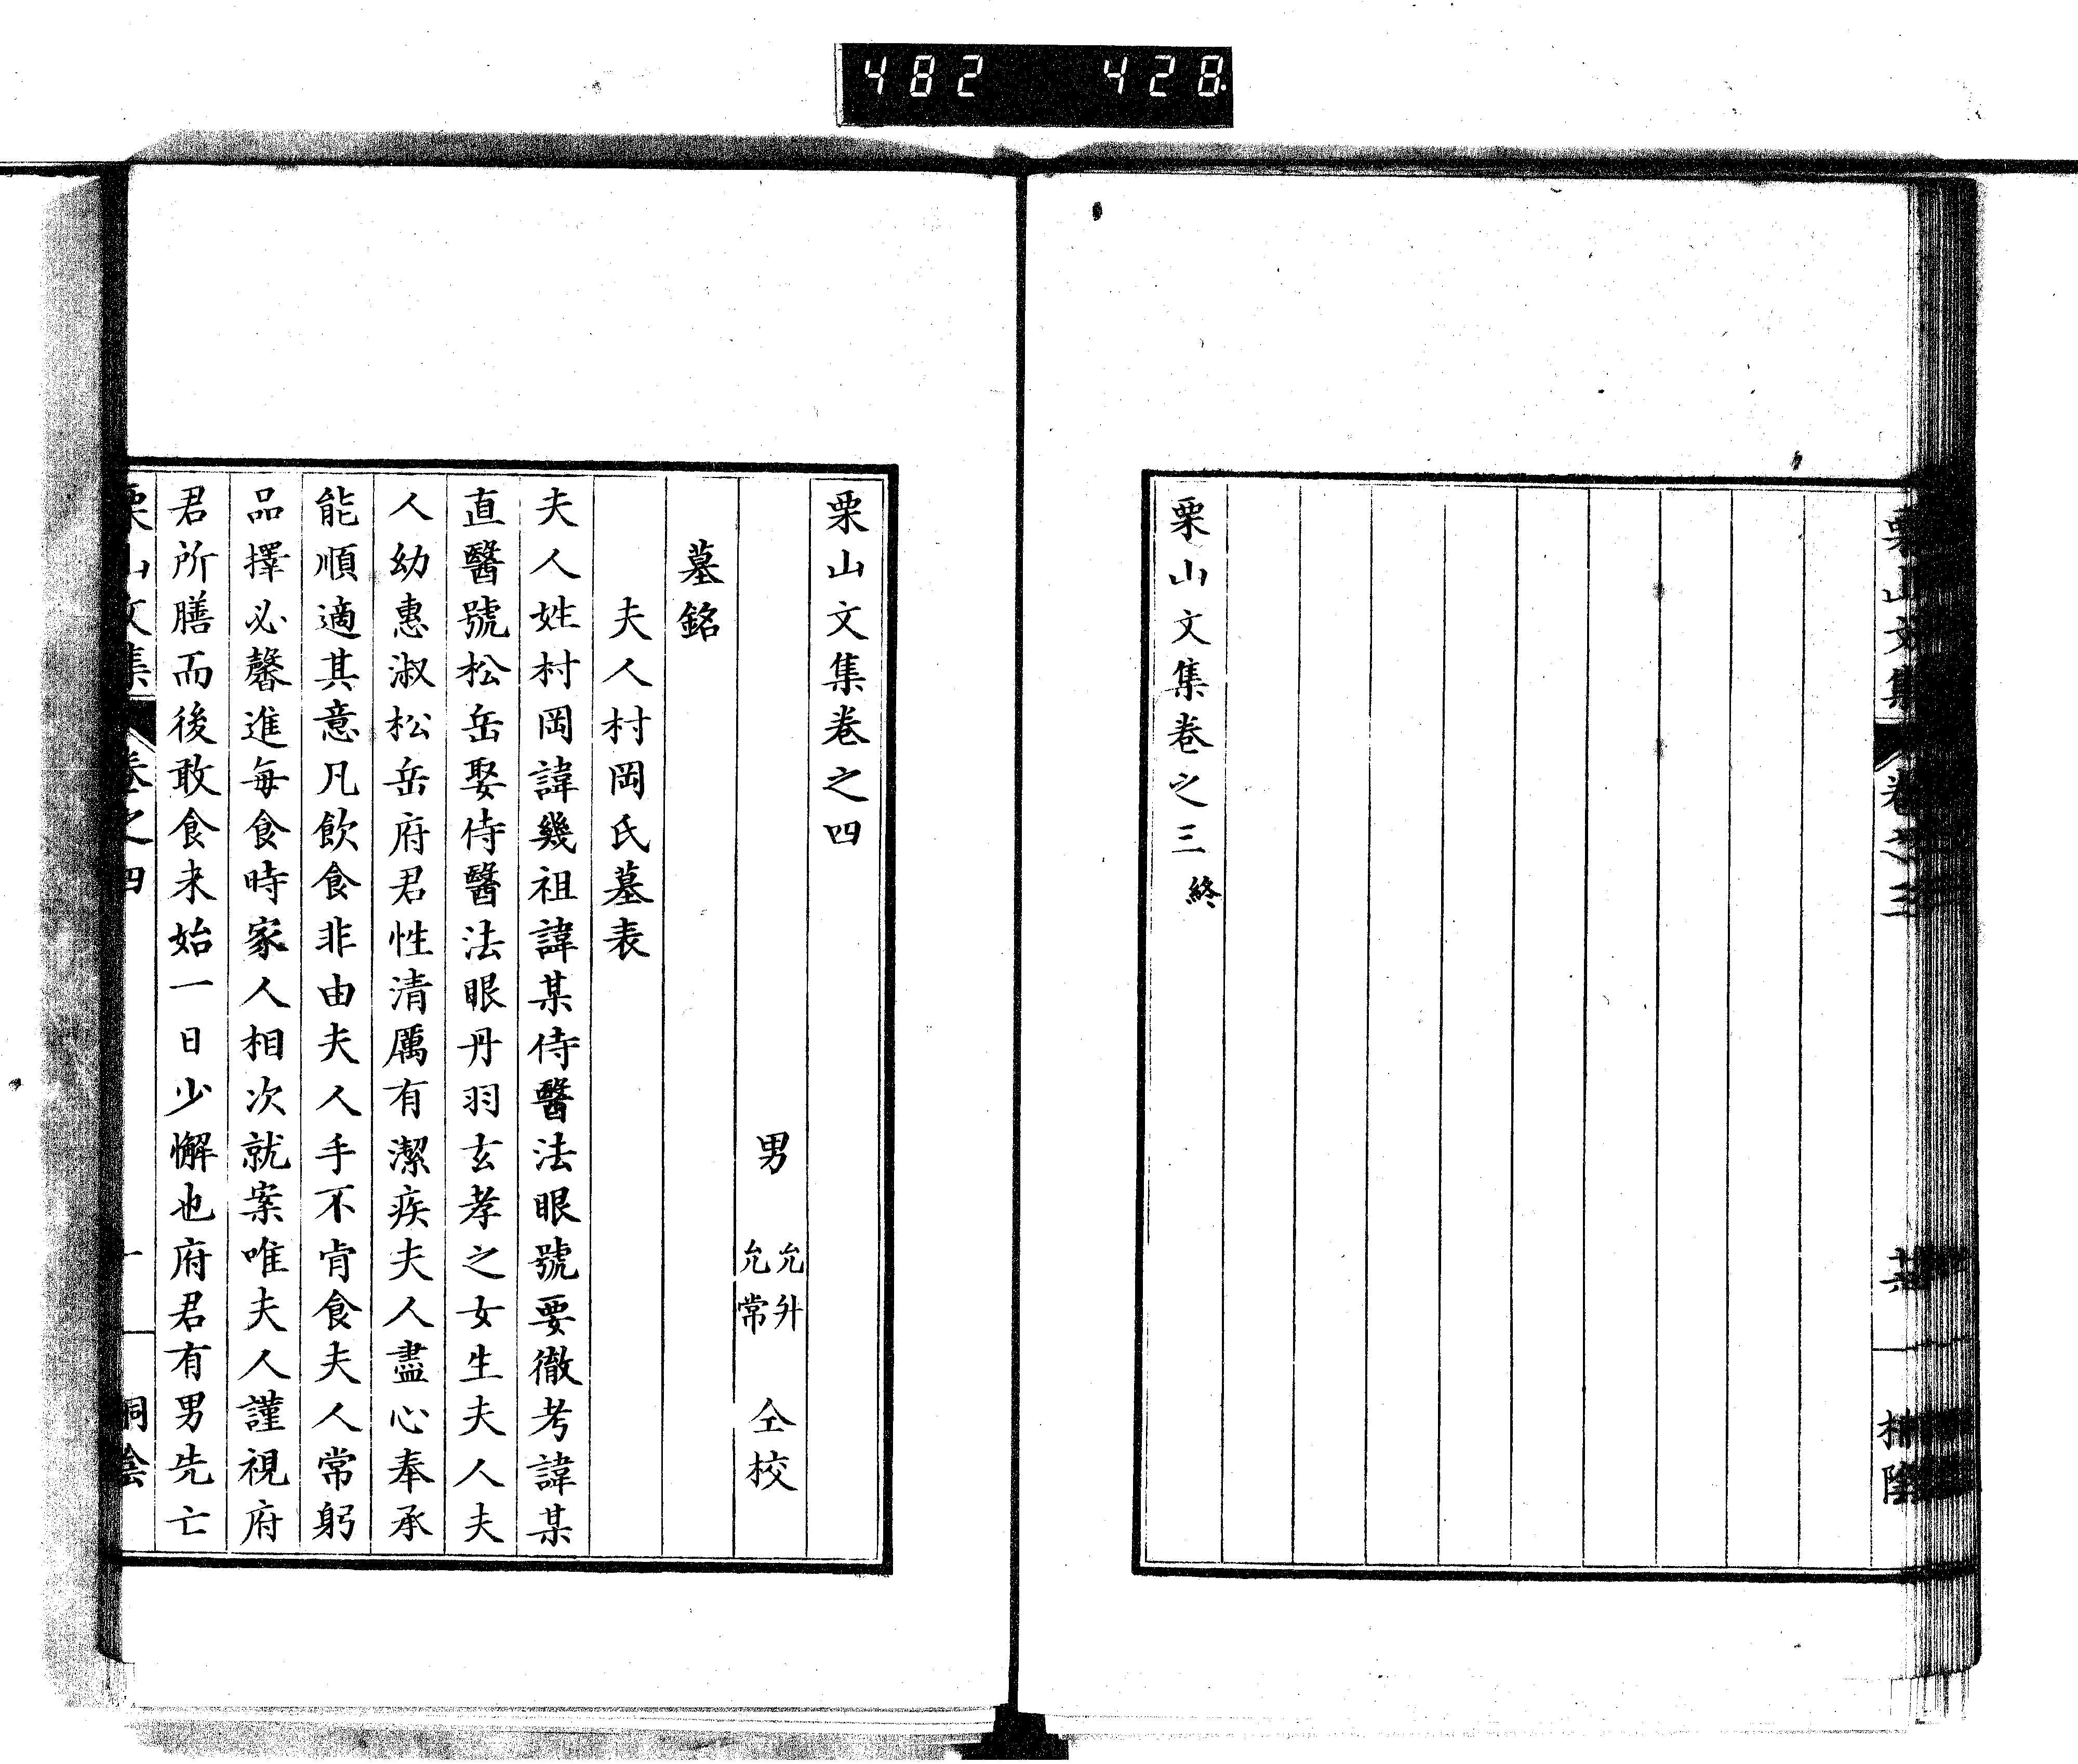 482 428
栗山文集卷之三 終
栗山文集卷之四
男 允升 允常 仝校
墓銘
夫人村岡氏墓表
夫人姓村岡諱幾祖諱某侍醫法眼號要徹考諱某
直醫號松岳娶侍醫法眼丹羽玄孝之女生夫人夫
人幼惠淑松岳府君性清厲有潔疾夫人盡心奉承
能順適其意凡飲食非由夫人手不肯食夫人常躬
品擇必馨進每食時家人相次就案唯夫人謹視府
君所膳而後敢食未始一日少懈也府君有男先亡
栗山文集 卷之四